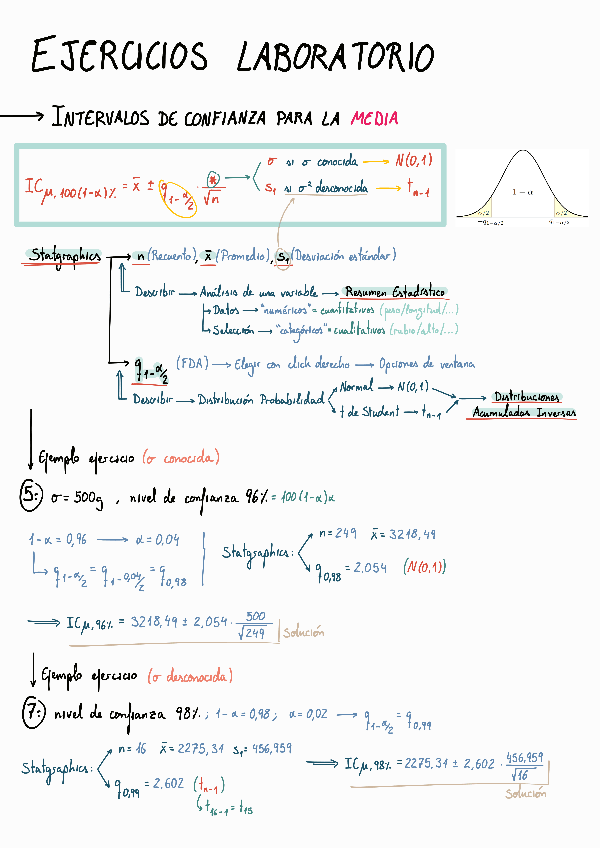 EJERCICIOS LABORATORIO
→ INTERVALOS DE CONFIANZA PARA LA MEDIA
IC μ, 100(1-α)% = x̄ ± q 1-α/2 · * / √n → σ si σ conocida → N(0,1)
s₁ si σ² desconocida → t n-1
1 − α
α/2 α/2
−q1−α/2 q1−α/2
Statgraphics → n (Recuento), x̄ (Promedio), s₁ (Desviación estándar)
Describir → Análisis de una variable → Resumen Estadístico
↳ Datos → "numéricos" = cuantitativos (peso/longitud/...)
↳ Selección → "categóricos" = cualitativos (rubio/alto/...)
q 1-α/2 (FDA) → Elegir con click derecho → Opciones de ventana
Describir → Distribución Probabilidad
Normal → N(0,1)
t de Student → t n-1
→ Distribuciones
Acumuladas Inversas
Ejemplo ejercicio (σ conocida)
5: σ = 500g , nivel de confianza 96% = 100(1-α)α
1-α = 0,96 → α = 0,04
↳ q 1-α/2 = q 1-0,04/2 = q 0,98
Statgraphics: n = 249 x̄ = 3218,49
q 0,98 = 2,054 (N(0,1))
⇒ IC μ, 96% = 3218,49 ± 2,054 · 500 / √249
Solución
Ejemplo ejercicio (σ desconocida)
7: nivel de confianza 98% ; 1-α = 0,98 ; α = 0,02 → q 1-α/2 = q 0,99
Statgraphics: n = 16 x̄ = 2275,31 s₁ = 456,959
q 0,99 = 2,602 (t n-1)
↳ t 16-1 = t 15
⇒ IC μ, 98% = 2275,31 ± 2,602 · 456,959 / √16
Solución